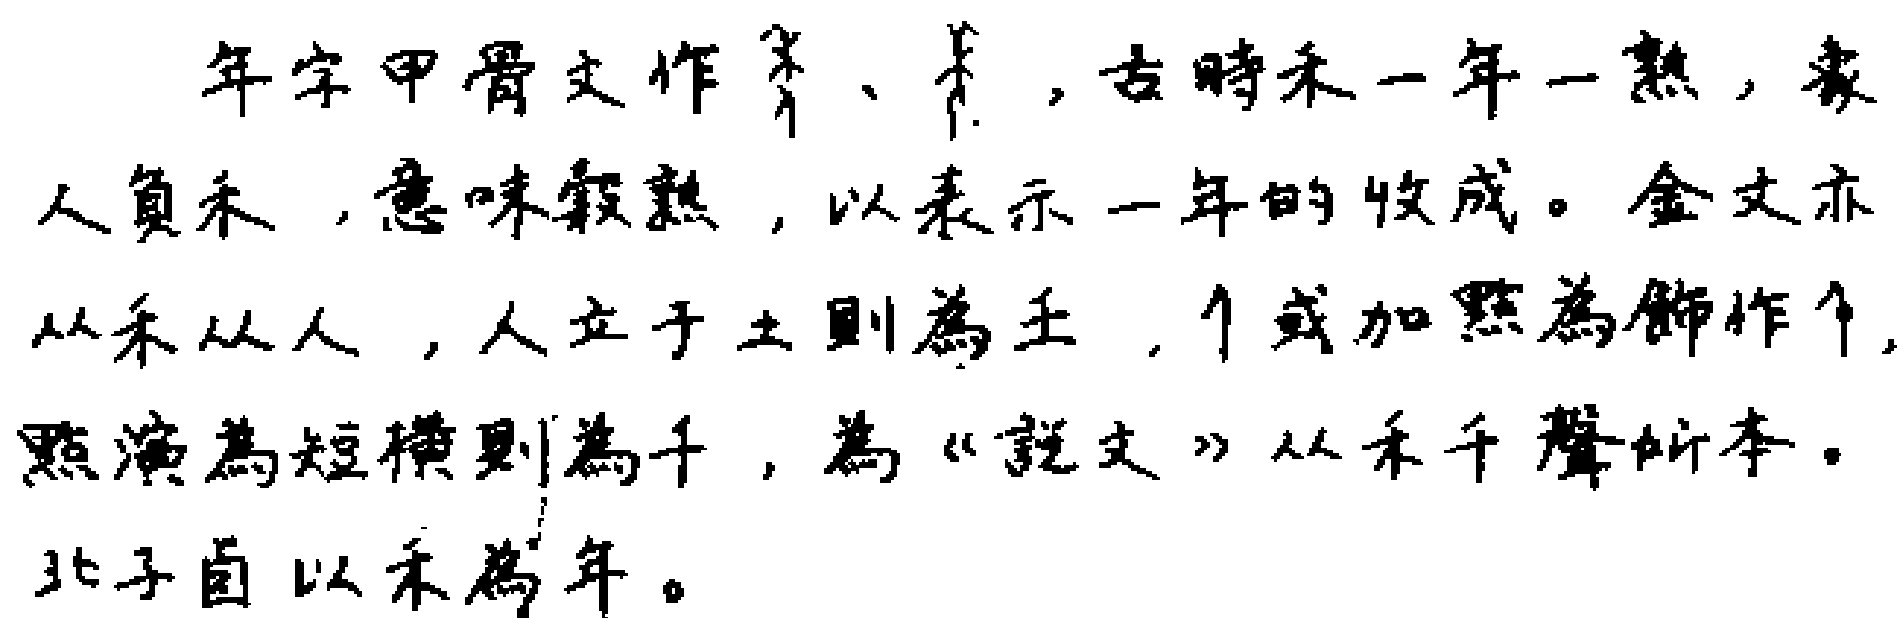 年字甲骨文作、，古時禾一年一熟，象
人負禾，意味穀熟，以表示一年的收成。金文亦
从禾从人，人立于土則為壬，或加點為飾作，
點演為短橫則為千，為《說文》从禾千聲所本。
北子卣以禾為年。